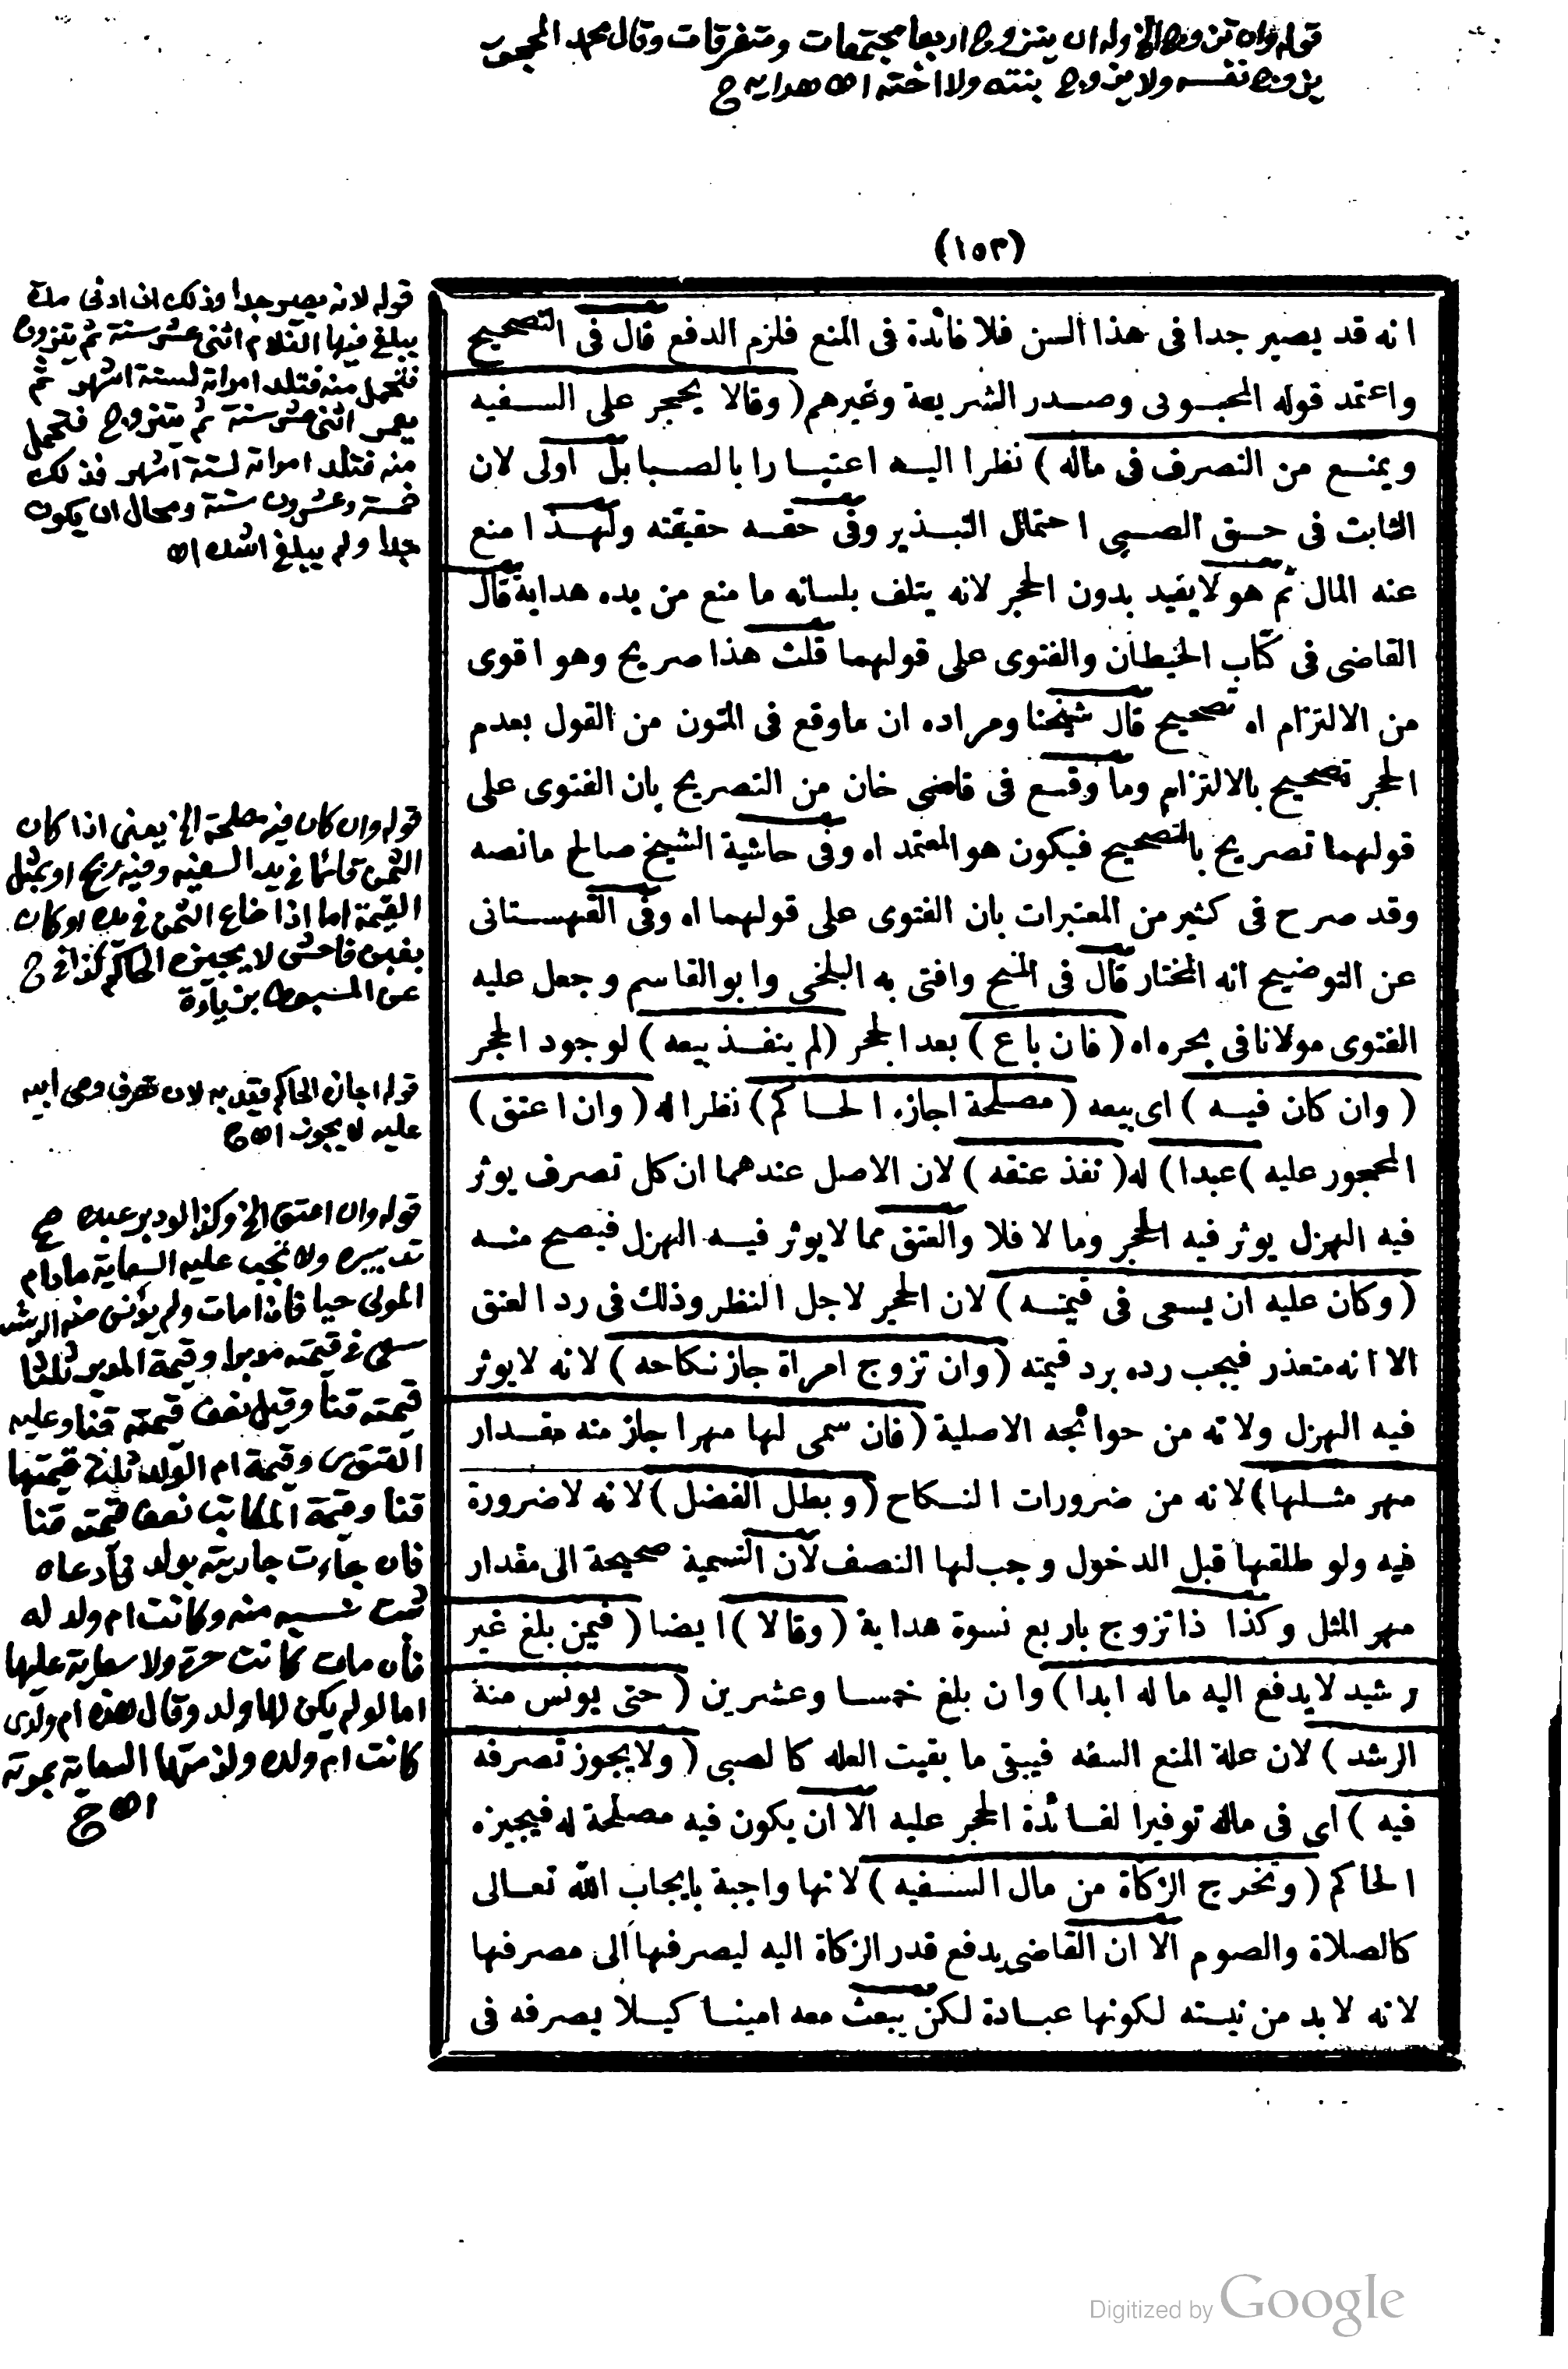 قوله وان تزوج الخ وله ان يتزوج اربعا مجتمعات ومتفرقات وقال محمد المحجور
يزوج نفسه ولا يزوج بنته ولا اخته اه هدايه ج
(١٥٣)
انه قد يصير جدا فى هذا السن فلا فائدة فى المنع فلزم الدفع قال فى التصحيح
واعتمد قوله المحبوبى وصدر الشريعة وغيرهم ( وقالا يحجر على السفيه
ويمنع من التصرف فى ماله ) نظرا اليه اعتبارا بالصبا بل اولى لان
الثابت فى حق الصبى احتمال التبذير وفى حقه حقيقته ولهذا منع
عنه المال ثم هو لا يفيد بدون الحجر لانه يتلف بلسانه ما منع من يده هداية قال
القاضى فى كتاب الحيطان والفتوى على قولهما قلت هذا صريح وهو اقوى
من الالتزام اه تصحيح قال شيخنا ومراده ان ماوقع فى المتون من القول بعدم
الحجر تصحيح بالالتزام وما وقع فى قاضى خان من التصريح بان الفتوى على
قولهما تصريح بالتصحيح فيكون هو المعتمد اه وفى حاشية الشيخ صالح مانصه
وقد صرح فى كثير من المعتبرات بان الفتوى على قولهما اه وفى القهستانى
عن التوضيح انه المختار قال فى المنح وافتى به البلخى وابو القاسم وجعل عليه
الفتوى مولانا فى بحره اه ( فان باع ) بعد الحجر ( لم ينفذ بيعه ) لوجود الحجر
( وان كان فيه ) اى بيعه ( مصلحة اجازه الحاكم ) نظرا له ( وان اعتق )
المحجور عليه ) عبدا ) له ( نفذ عتقه ) لان الاصل عندهما ان كل تصرف يوثر
فيه الهزل يوثر فيه الحجر وما لا فلا والعتق مما لا يوثر فيه الهزل فيصح منه
( وكان عليه ان يسعى فى قيمته ) لان الحجر لاجل النظر وذلك فى رد العتق
الا انه متعذر فيجب رده برد قيمته ( وان تزوج امراة جاز نكاحه ) لانه لا يوثر
فيه الهزل ولانه من حوائجه الاصلية ( فان سمى لها مهرا جاز منه مقدار
مهر مثلها ) لانه من ضرورات النكاح ( وبطل الفضل ) لانه لا ضرورة
فيه ولو طلقها قبل الدخول وجب لها النصف لان التسمية صحيحة الى مقدار
مهر المثل وكذا اذا تزوج باربع نسوة هداية ( وقالا ) ايضا ( فيمن بلغ غير
رشيد لا يدفع اليه ماله ابدا ) وان بلغ خمسا وعشرين ( حتى يونس منة
الرشد ) لان علة المنع السفه فيبقى ما بقيت العله كالصبى ( ولا يجوز تصرفه
فيه ) اى فى ماله توفيرا لفائدة الحجر عليه الا ان يكون فيه مصلحة له فيجيزه
الحاكم ( وتخرج الزكاة من مال السفيه ) لانها واجبة بايجاب الله تعالى
كالصلاة والصوم الا ان القاضى يدفع قدر الزكاة اليه ليصرفها الى مصرفها
لانه لا بد من نيته لكونها عبادة لكن يبعث معه امينا كيلا يصرفه فى
قوله لانه يصير جدا وذلك ان ادنى مدة
يبلغ فيها الغلام اثنى عشر سنة ثم يتزوج
فتحمل منه فتلد امراته لستة اشهر ثم
يعمر اثنى عشر سنة ثم يتزوج فتحمل
منه فتلد امراته لستة اشهر فذلك
خمسة وعشرون سنة ومحال ان يكون
جدا ولم يبلغ اشده اه
قوله وان كان فيه مصلحة الخ يعنى اذا كان
الثمن قائما فى يد السفيه وفيه ربح او بمثل
القيمة اما اذا ضاع الثمن فى يده او كان
بغبن فاحش لا يجيزه الحاكم كذا فى ج
عن المبسوط بزيادة
قوله اجازه الحاكم قيد به لان تصرف وصى ابيه
عليه لا يجوز اه ج
قوله وان اعتق الخ وكذا لو دبر عبده صح
تدبيره ولا تجب عليه السعاية مادام
المولى حيا فاذا مات ولم يؤنس منه الرشد
سعى فى قيمته مدبرا وقيمة المدبر ثلثا
قيمته قنا وقيل نصف قيمته قنا وعليه
الفتوى وقيمة ام الولد ثلث قيمتها
قنا وقيمة المكاتب نصف قيمته قنا
فان جاءت جاريته بولد فادعاه
ثبت نسبه منه وكانت ام ولد له
فان مات كانت حرة ولا سعاية عليها
اما لو لم يكن لها ولد وقال هذه ام ولدى
كانت ام ولده ولزمتها السعاية بموته
اه ج
Digitized by Google